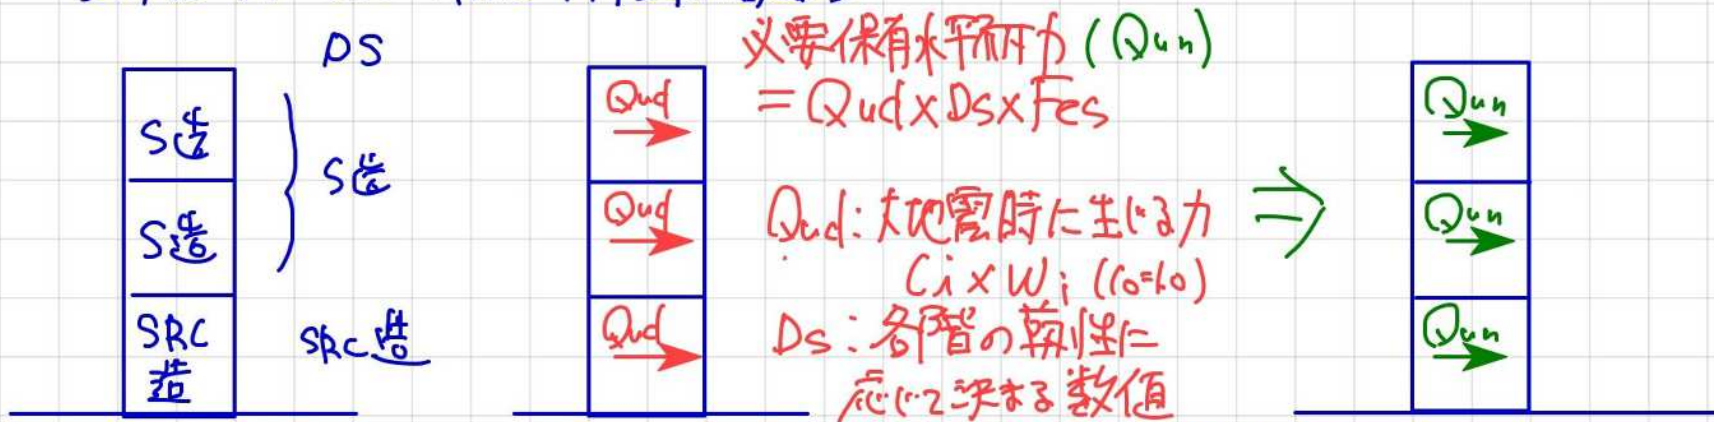 DS
S造
S造
SRC
造
S造
SRC造
Qud
Qud
Qud
必要保有水平耐力(Qun)
=Qud×Ds×Fes
Qud:大地震時に生じる力
Ci×Wi(C0=1.0)
Ds:各階の靭性に
応じて決まる数値
⇒
Qun
Qun
Qun